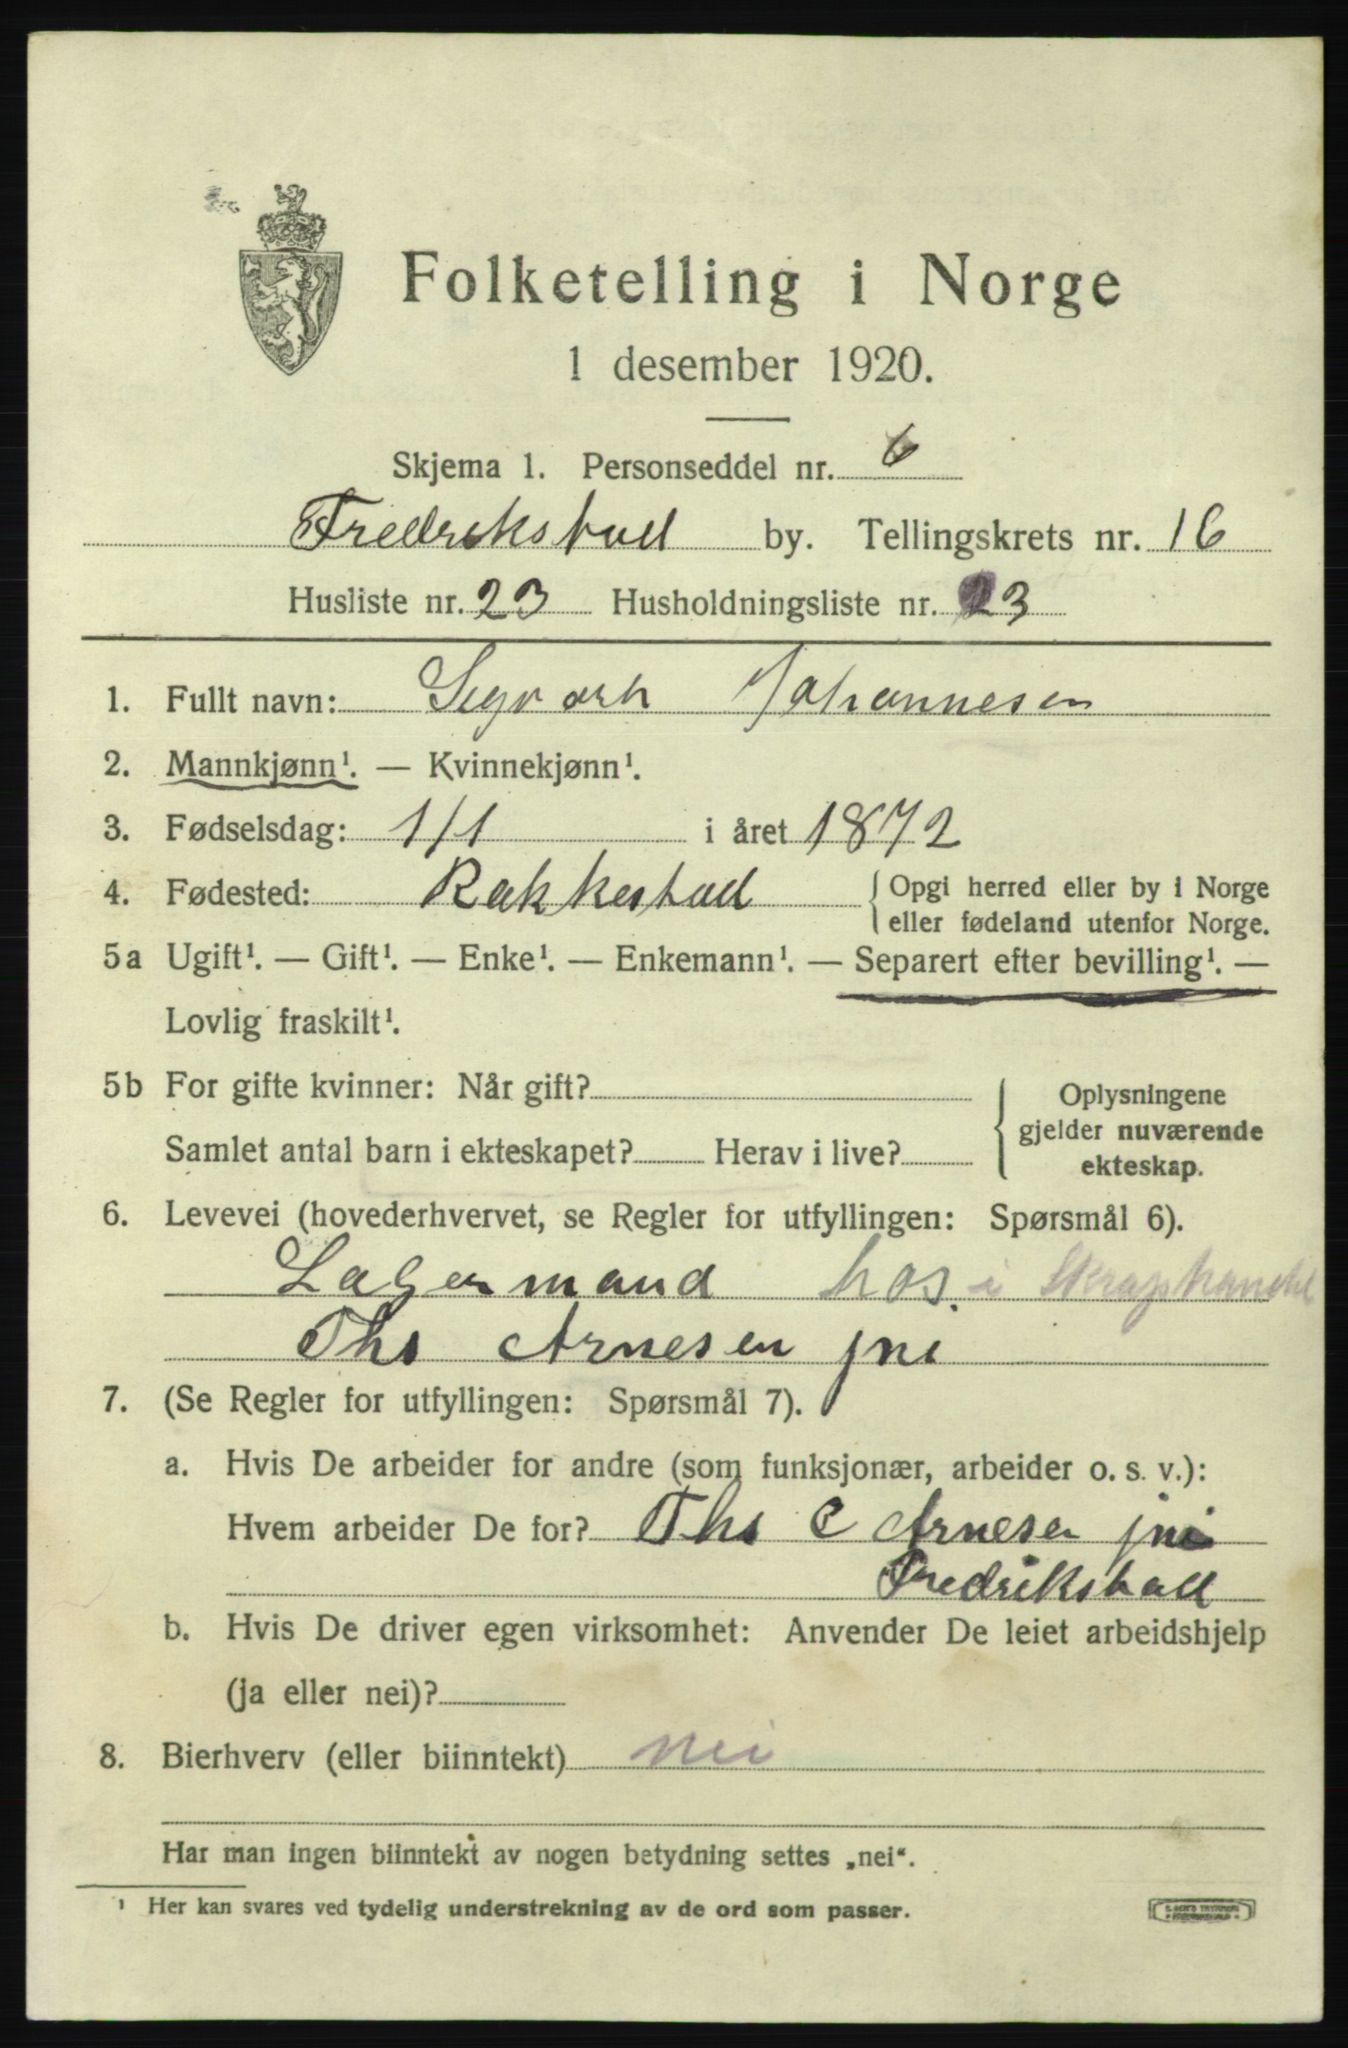 Folketelling i Norge
1 desember 1920.
Skjema 1. Personseddel nr. 6
Fredrikstad by. Tellingskrets nr. 16
Husliste nr. 23 Husholdningsliste nr. 23
1. Fullt navn: Sigvarh Johannesen
2. Mannkjønn¹. — Kvinnekjønn¹.
3. Fødselsdag: 1/1 i året 1872
4. Fødested: Rakkestad { Opgi herred eller by i Norge
eller fødeland utenfor Norge.
5a Ugift¹. — Gift¹. — Enke¹. — Enkemann¹. — Separert efter bevilling¹. —
Lovlig fraskilt¹.
5b For gifte kvinner: Når gift?
Samlet antal barn i ekteskapet? Herav i live?
{ Oplysningene
gjelder nuværende
ekteskap.
6. Levevei (hovederhvervet, se Regler for utfyllingen: Spørsmål 6).
Lagermand hos. i Skraphandel
Ths Arnesen jni
7. (Se Regler for utfyllingen: Spørsmål 7).
a. Hvis De arbeider for andre (som funksjonær, arbeider o. s. v.):
Hvem arbeider De for? Ths C Arnesen jni
Fredrikstad
b. Hvis De driver egen virksomhet: Anvender De leiet arbeidshjelp
(ja eller nei)?
8. Bierhverv (eller biinntekt) nei
Har man ingen biinntekt av nogen betydning settes „nei“.
¹ Her kan svares ved tydelig understrekning av de ord som passer.